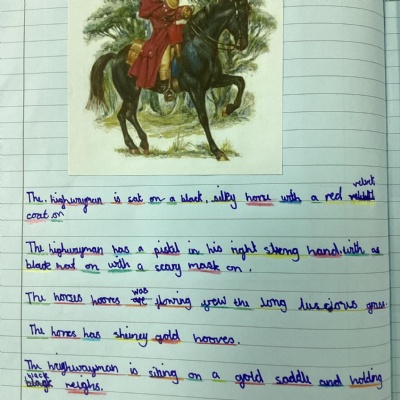 The highwayman is sat on a black, silky horse with a red velvet
coat on
The highwayman has a pistal in his right streng hand with a
black hat on with a scary mask on.
The horses hooves was flowing grew the long luscious grass.
The horses has shiney gold hooves.
The highwayman is siting on a gold saddle and holding
black reighs.